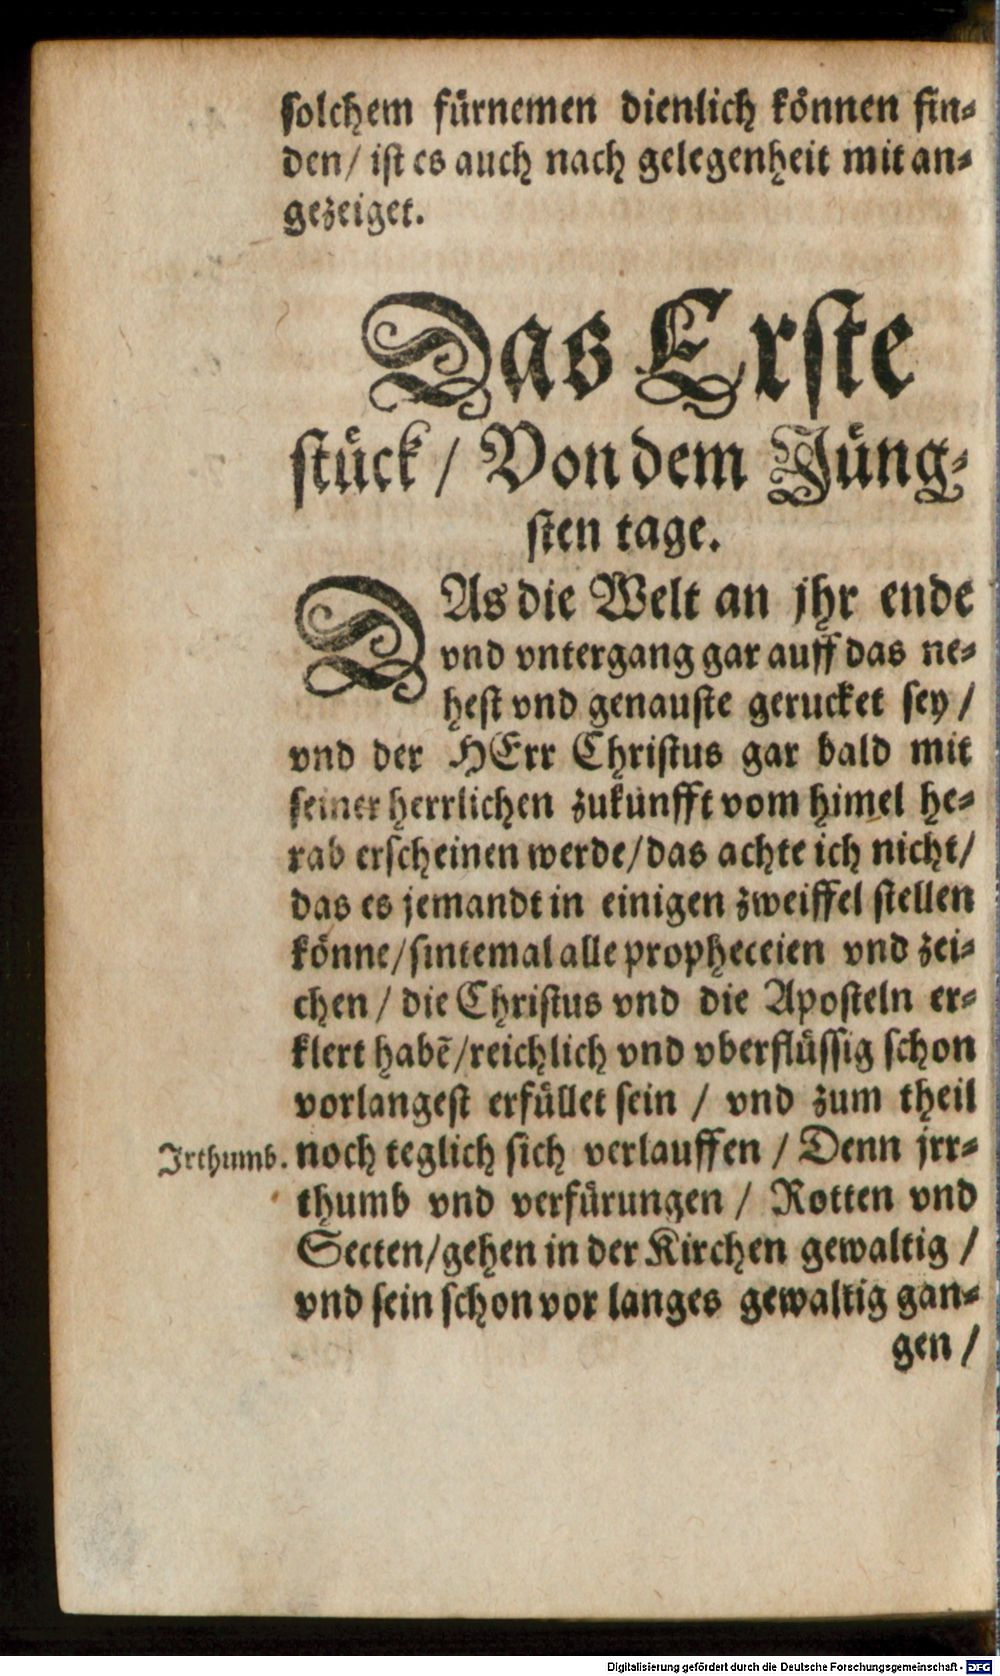 solchem fuͤrnemen dienlich koͤnnen fin⸗
den/ ist es auch nach gelegenheit mit an⸗
gezeiget.
Das Erste
stuͤck / Von dem Juͤng⸗
sten tage.
DAs die Welt an jhr ende
vnd vntergang gar auff das ne⸗
hest vnd genauste gerucket sey /
vnd der HErr Christus gar bald mit
seiner herrlichen zukunfft vom himel he⸗
rab erscheinen werde/das achte ich nicht/
das es jemandt in einigen zweiffel stellen
koͤnne/sintemal alle propheceien vnd zei⸗
chen / die Christus vnd die Aposteln er⸗
klert habẽ/reichlich vnd vberfluͤssig schon
vorlangest erfuͤllet sein / vnd zum theil
noch teglich sich verlauffen / Denn jrr⸗
Irthumb.
thumb vnd verfuͤrungen / Rotten vnd
Secten/gehen in der Kirchen gewaltig /
vnd sein schon vor langes gewaltig gan⸗
gen /
Digitalisierung gefördert durch die Deutsche Forschungsgemeinschaft - DFG